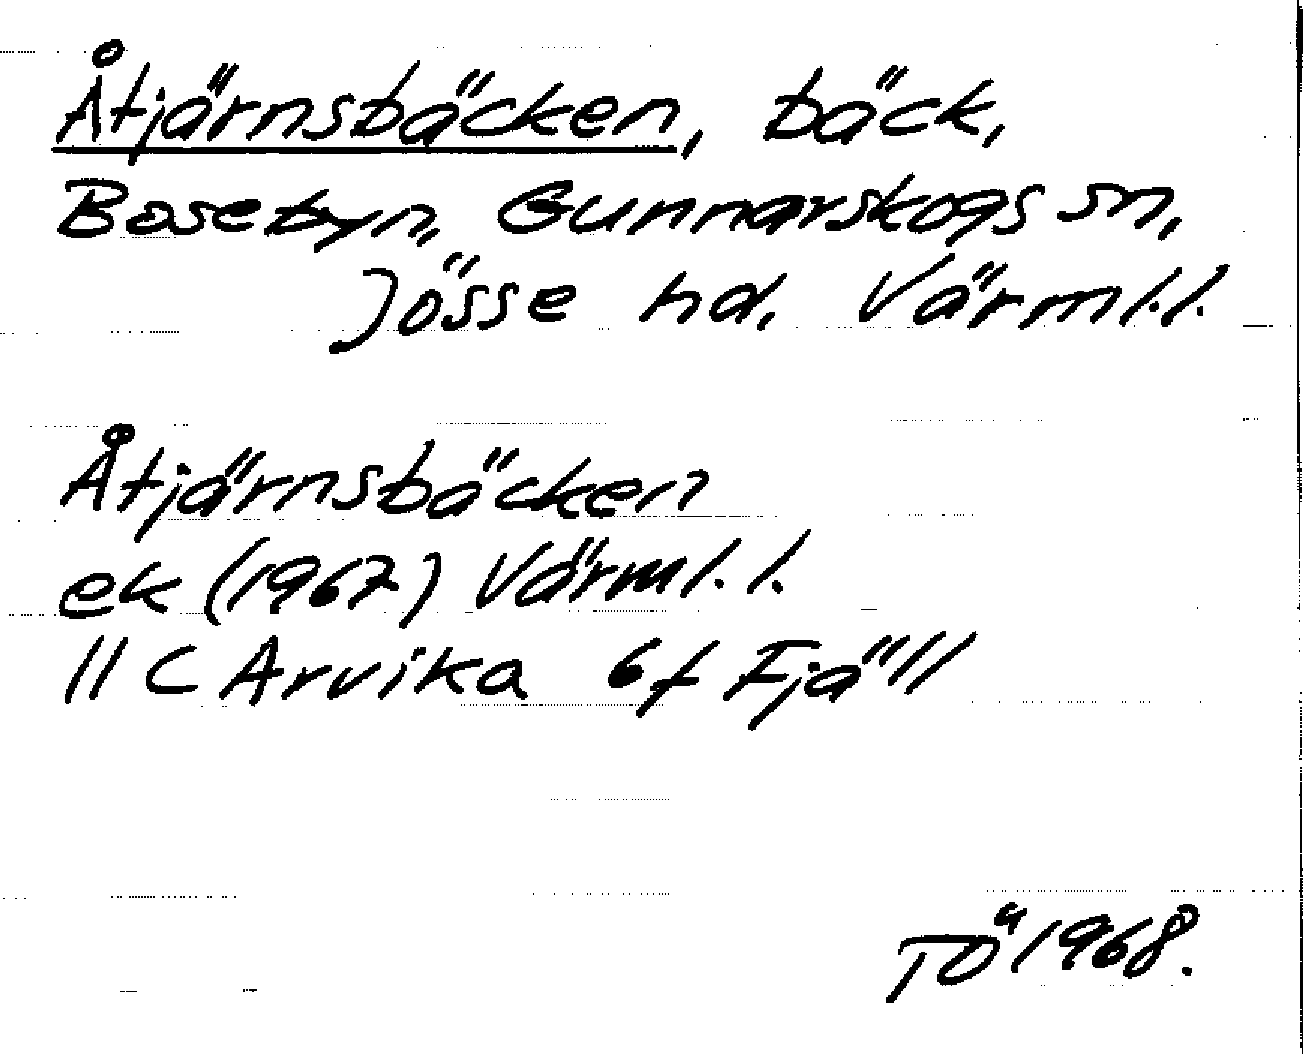 Åtjärnsbäcken, bäck,
Bosebyn, Gunnarskogs sn,
Jösse hd, Värml.l.
Åtjärnsbäcken
ek (1967) Värml. l.
11 C Arvika 6f Fjäll
TÖ 1968.